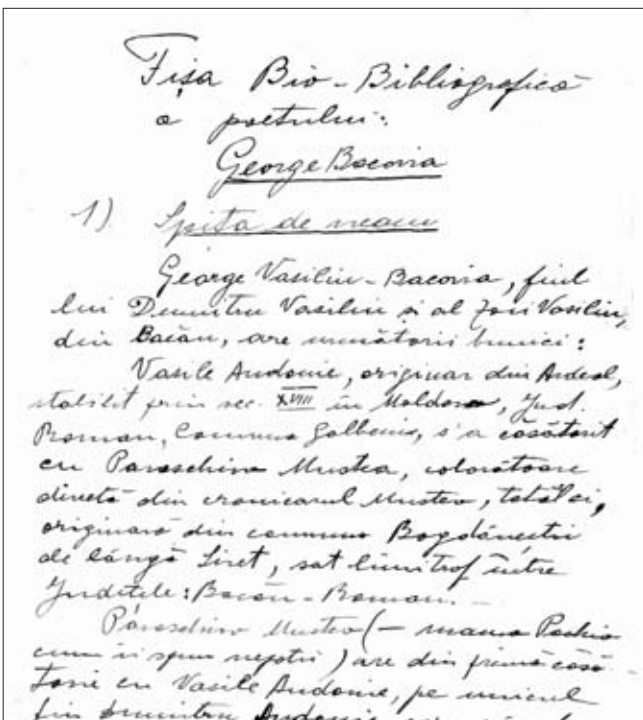 Fișa Bio-Bibliografică
a poetului:
George Bacovia
1) Spița de neam
George Vasiliu-Bacovia, fiul
lui Dumitru Vasiliu și al Zoei Vasiliu,
din Bacău, are următorii bunici:
Vasile Andonie, originar din Ardeal,
stabilit prin sec. XVIII în Moldova, Jud.
Roman, Comuna Galbeni, s'a căsătorit
cu Paraschiva Mustea, coborâtoare
directă din cronicarul Mustea, tatăl ei,
originară din comuna Bogdănești
de lângă Siret, sat limitrof între
Județele: Bacău-Roman.—
Paraschiva Mustea (— mama
cum îi spun nepoții) are din prima căsă-
torie cu Vasile Andonie, pe unicul
fiu Dumitru Andonie